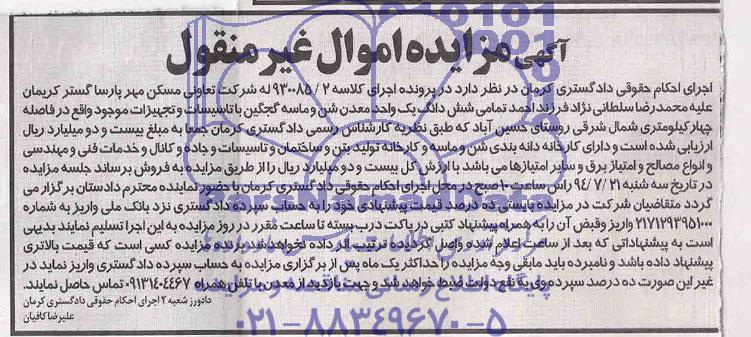 آگهی مزایده اموال غیر منقول
اجرای احکام حقوقی دادگستری کرمان در نظر دارد در پرونده اجرای کلاسه ۲ / ۹۳۰۰۸۵ له شرکت تعاونی مسکن مهر پارسا گستر کریمان
علیه محمدرضا سلطانی نژاد فرزند احمد تمامی شش دانگ یک واحد معدن شن و ماسه گچگین با تاسیسات و تجهیزات موجود واقع در فاصله
چهار کیلومتری شمال شرقی روستای حسین آباد که طبق نظریه کارشناس رسمی دادگستری کرمان جمعا به مبلغ بیست و دو میلیارد ریال
ارزیابی شده است و دارای کارخانه دانه بندی شن و ماسه و کارخانه تولید بتن و ساختمان و تاسیسات و جاده و کانال و خدمات فنی و مهندسی
و انواع مصالح و امتیاز برق و سایر امتیازها می باشد با ارزش کل بیست و دو میلیارد ریال را از طریق مزایده به فروش برساند جلسه مزایده
در تاریخ سه شنبه ۲۱ / ۷ / ۹۴ راس ساعت ۱۰ صبح در محل اجرای احکام حقوقی دادگستری کرمان با حضور نماینده محترم دادستان برگزار می
گردد متقاضیان شرکت در مزایده بایستی ده درصد قیمت پیشنهادی خود را به حساب سپرده دادگستری نزد بانک ملی واریز به شماره
۲۱۷۱۲۹۳۹۵۱۰۰۰ واریز وقبض آن را به همراه پیشنهاد کتبی در پاکت درب بسته تا ساعت مقرر در روز مزایده به این اجرا تسلیم نمایند بدیهی
است به پیشنهاداتی که بعد از ساعت اعلام شده واصل گردیده ترتیب اثر داده نخواهد شد برنده مزایده کسی است که قیمت بالاتری
پیشنهاد داده باشد و نامبرده باید مابقی وجه مزایده را حداکثر یک ماه پس از برگزاری مزایده به حساب سپرده دادگستری واریز نماید در
غیر این صورت ده درصد سپرده وی به نفع دولت ضبط خواهد شد و جهت بازدید از معدن با تلفن همراه ۰۹۱۳۱۴۰۴۴۶۷ تماس حاصل نمایند.
دادورز شعبه ۲ اجرای احکام حقوقی دادگستری کرمان
علیرضا کافیان
۰۲۱-۸۸۳۴۹۶۷۰-۵